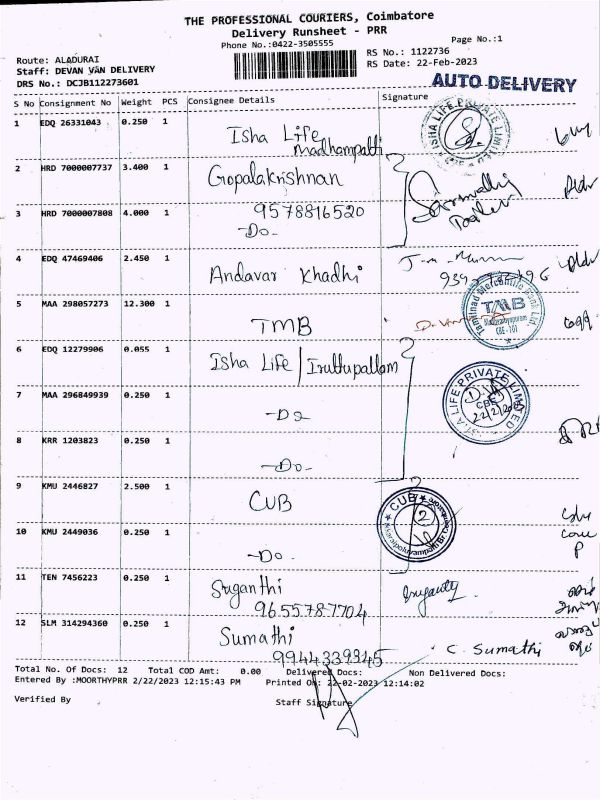 THE PROFESSIONAL COURIERS, Coimbatore
Delivery Runsheet - PRR
Phone No.:0422-3505555
Page No.:1
Route: ALADURAI
RS No.: 1122736
Staff: DEVAN VAN DELIVERY
RS Date: 22-Feb-2023
DRS No.: DCJB112273601
AUTO DELIVERY
S No Consignment No Weight PCS Consignee Details Signature
1 EDQ 26331043 0.250 1
Isha Life
Madhampatti
ISHA LIFE PRIVATE LIMITED
2 HRD 7000007737 3.400 1
Gopalakrishnan
3 HRD 7000007808 4.000 1
9578816520
-Do-
4 EDQ 47469406 2.450 1
Andavar Khadhi
5 MAA 298057273 12.300 1
TMB
Tamilnad Mercantile Bank Ltd.
TMB
6 EDQ 12279906 0.055 1
Isha Life / Iruttupallam
7 MAA 296849939 0.250 1
-Do-
ISHA LIFE PRIVATE LIMITED
CBE
22/2/2023
8 KRR 1203823 0.250 1
-Do-
9 KMU 2446827 2.500 1
CUB
CUB
10 KMU 2449036 0.250 1
-Do-
11 TEN 7456223 0.250 1
Suganthi
9655787704
12 SLM 314294360 0.250 1
Sumathi
9944339345
C. Sumathi
Total No. Of Docs: 12 Total COD Amt: 0.00 Delivered Docs: Non Delivered Docs:
Entered By :MOORTHYPRR 2/22/2023 12:15:43 PM Printed On: 22-02-2023 12:14:02
Verified By
Staff Signature